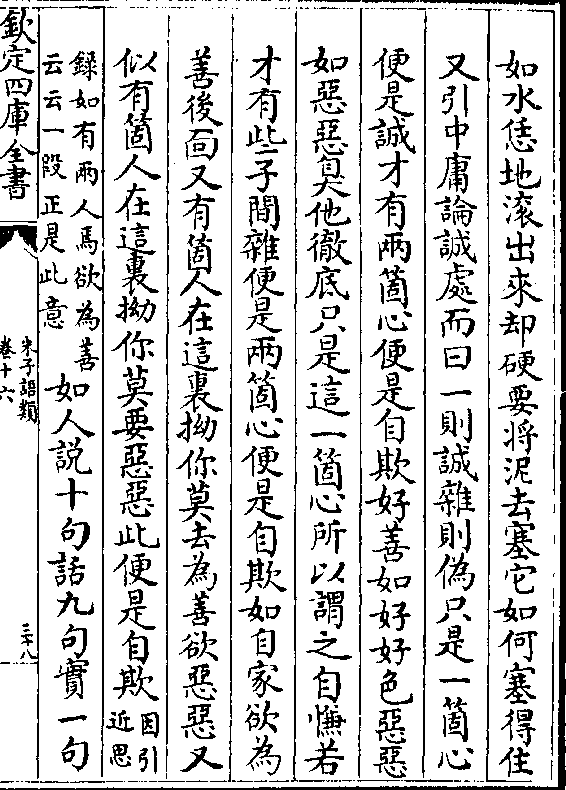 如水恁地滚出來却硬要將泥去塞它如何塞得住
又引中庸論誠處而曰一則誠雜則偽只是一箇心
便是誠才有兩箇心便是自欺好善如好好色惡惡
如惡惡臭他徹底只是這一箇心所以謂之自慊若
才有些子間雜便是兩箇心便是自欺如自家欲為
善後面又有箇人在這裏拗你莫去為善欲惡惡又
似有箇人在這裏拗你莫要惡惡此便是自欺因引
近思
録如有兩人焉欲為善
云云一段正是此意
如人說十句話九句實一句
欽定四庫全書
朱子語類
卷十六
三十八